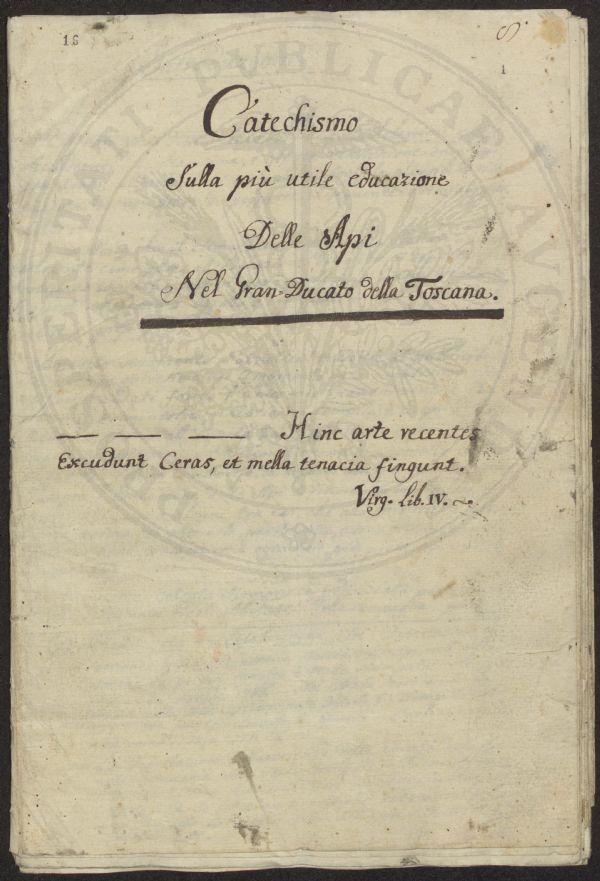 16
1
Catechismo
Sulla più utile educazione
Delle Api
Nel Gran-Ducato della Toscana.
— — — Hinc arte recentes
Excudunt Ceras, et mella tenacia fingunt.
Virg. lib. IV. ~.
PROSPERITATI PUBLICAE AUGENDAE